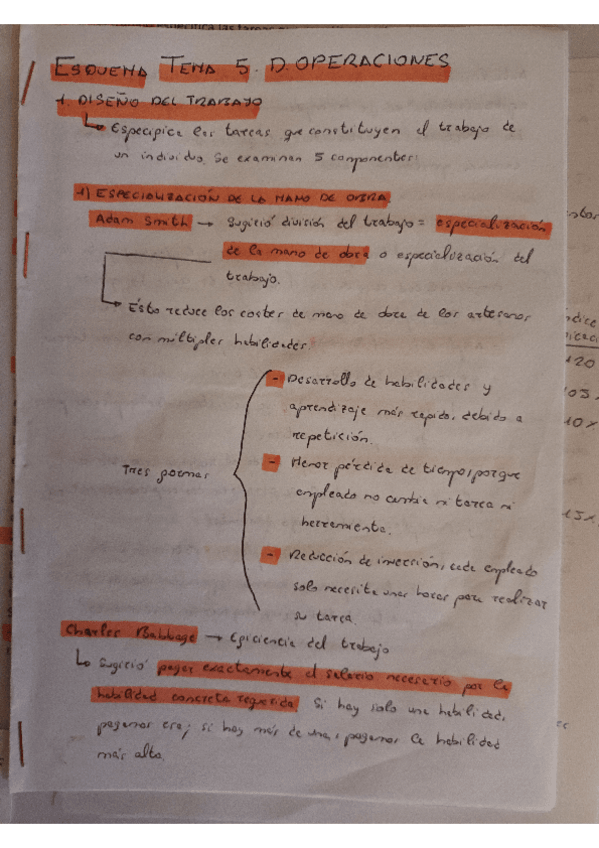 ESQUEMA TEMA 5. D. OPERACIONES
1. DISEÑO DEL TRABAJO
Especifica las tareas que constituyen el trabajo de
un individuo. Se examinan 5 componentes:
1) ESPECIALIZACIÓN DE LA MANO DE OBRA
Adam Smith → Sugirió división del trabajo = especialización
de la mano de obra o especialización del
trabajo.
Ésto reduce los costes de mano de obra de los artesanos
con múltiples habilidades.
- Desarrollo de habilidades y
aprendizaje más rápido, debido a
repetición.
Tres formas
- Menor pérdida de tiempo, porque
empleado no cambia ni tarea ni
herramienta.
- Reducción de inversión, cada empleado
solo necesita unas horas para realizar
su tarea.
Charles Babbage → Eficiencia del trabajo
Sugirió pagar exactamente el salario necesario por la
habilidad concreta requerida. Si hay solo una habilidad,
pagamos esa; si hay más de una, pagamos la habilidad
más alta.
120